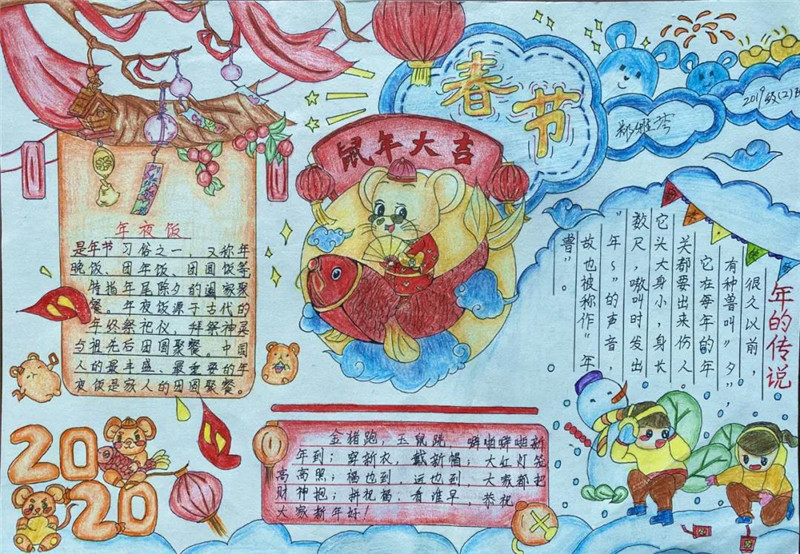 春节
2019级(2)班
鼠年大吉
年夜饭
是年节习俗之一,又称年
晚饭、团年饭、团圆饭等
特指年尾除夕的阖家聚
餐。年夜饭源于古代的
年终祭祀仪,拜祭神灵
与祖先后团圆聚餐。中国
人的最丰盛、最重要的年
夜饭是家人的团圆聚餐。
年的传说
很久以前,
有种兽叫“夕”,
它在每年的年
关都要出来伤人
它头大身小,身长
数尺,嗷叫时发出
“年~”的声音,
故也被称作“年
兽”。
2020
金猪跑,玉鼠跳 噼啪噼啪新
年到;穿新衣,戴新帽;大红灯笼
高高照;福也到,运也到 大家都把
财神抱;拼祝福,看谁早,恭祝
大家新年好!